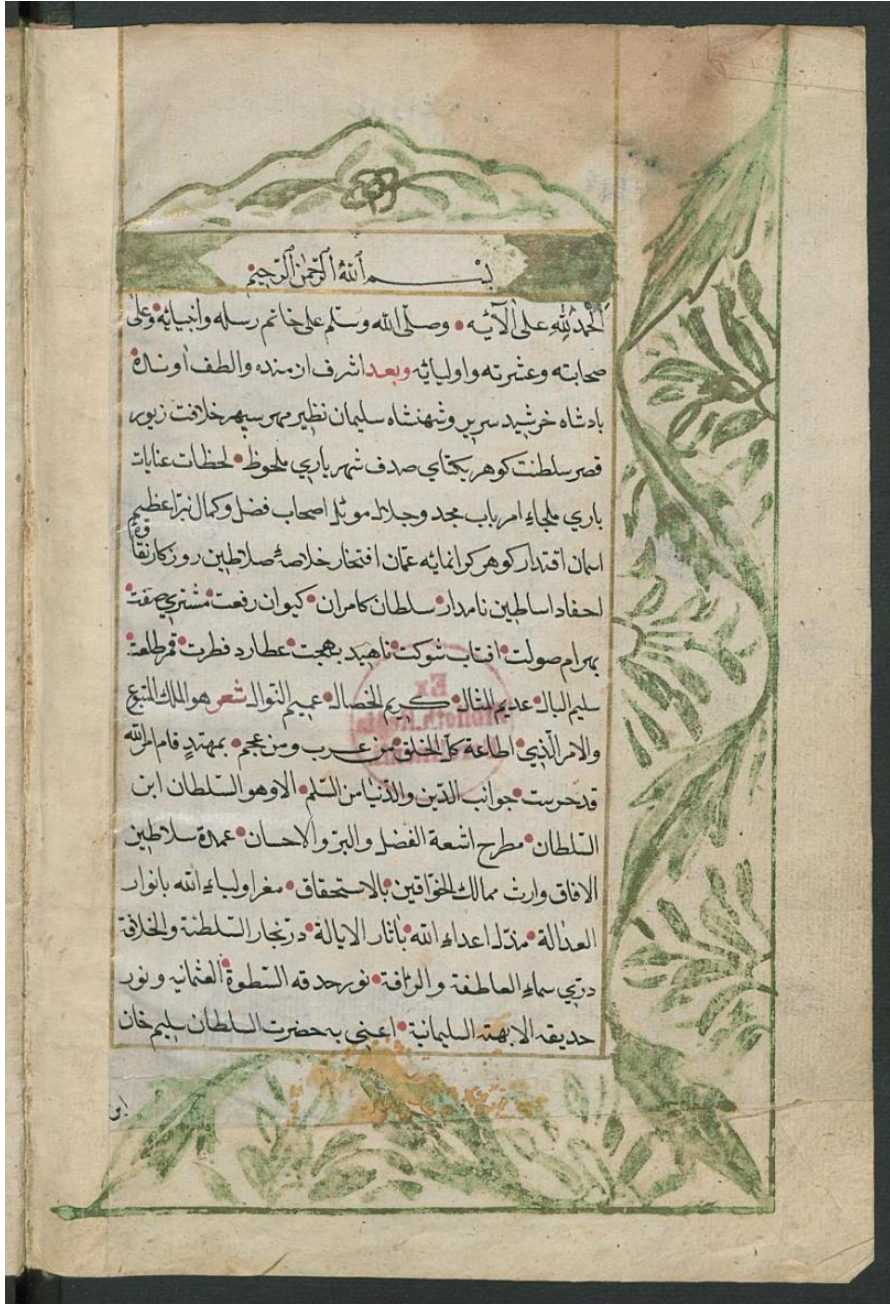 بسم الله الرحمن الرحيم
الحمد لله على آلآئه • وصلى الله وسلم على خاتم رسله وانبيائه • وعلى
صحابته وعشرته واوليائه وبعد اشرف ازمنده والطف اونده
بادشاه خرشيد سرير وشهنشاه سليمان نظير مهر سپهر خلافت زيور
قصر سلطنت كوهر يكتاي صدف شهرياري ملحوظ • لحظات عنايات
باري ملجاء امرباب مجد وجلال موئل اصحاب فضل وكمال نيراعظيم
اسمان اقتدار كوهر كرانمايه عمان افتخار خلاصهٔ صلاطين روزكار نقاوهٔ
احفاد اساطين نامدار • سلطان كامران • كيوان رفعت • مشتري صفت •
بهرام صولت • افتاب شوكت • ناهيد بهجت • عطارد فطرت • قمر طلعت •
سليم البال • عديم المثال • كريم الخصال • عميم النوال • شعر هو الملك المتبع
والامر الذي • اطاعة كل الخلق • من عرب ومن عجم • بمهتدٍ قام امر الله
قد حرست • جوانب الدين والدنيا من الثلم • الا وهو السلطان ابن
السلطان • مطرح اشعة الفضل والبر والاحسان • عمدة سلاطين
الافاق وارث ممالك الخواقين • بالاستحقاق • مغر اولياء الله بانوار
العدالة • مذل اعداء الله باثار الايالة • در بحار السلطنة والخلافة
دري سماء العاطفة والرافة • نور حدقه السطوة العثمانيه ونور
حديقه الابهته السليمانية • اعني به حضرت السلطان سليم خان
ابن
Ex
Biblioth. Regia